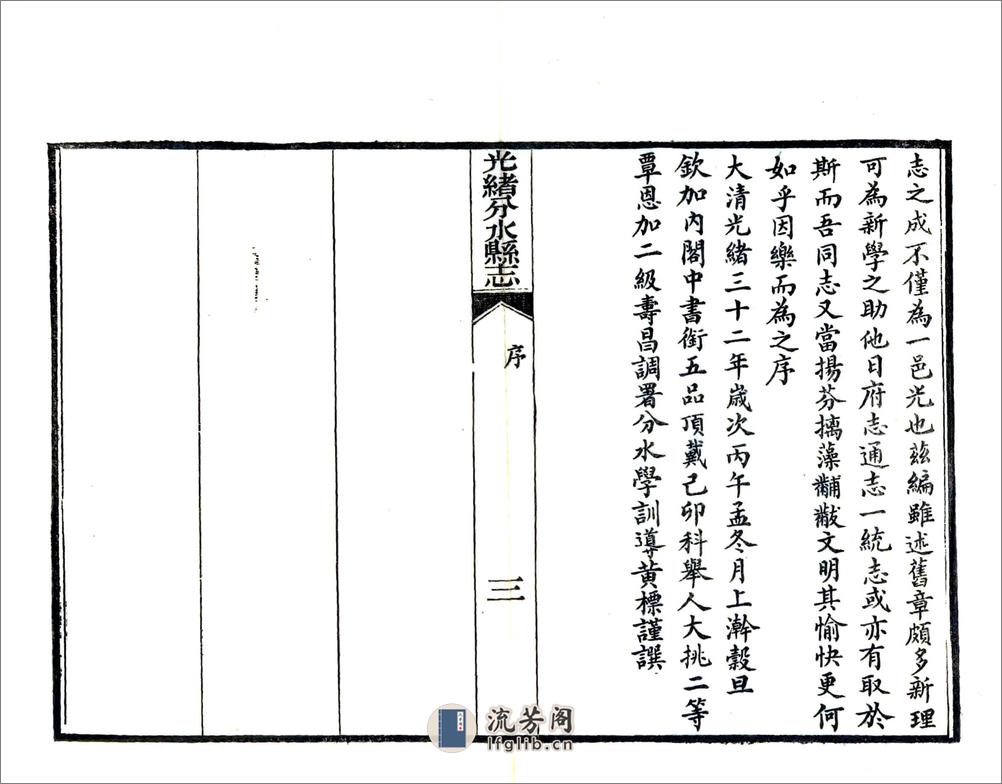 志之成不僅為一邑光也茲編雖述舊章頗多新理
可為新學之助他日府志通志一統志或亦有取於
斯而吾同志又當揚芬摛藻黼黻文明其愉快更何
如乎因樂而為之序
大清光緒三十二年歲次丙午孟冬月上澣穀旦
欽加內閣中書銜五品頂戴己卯科舉人大挑二等
覃恩加二級壽昌調署分水學訓導黃標謹譔
光緒分水縣志
序
三
流芳阁
lfglib.cn